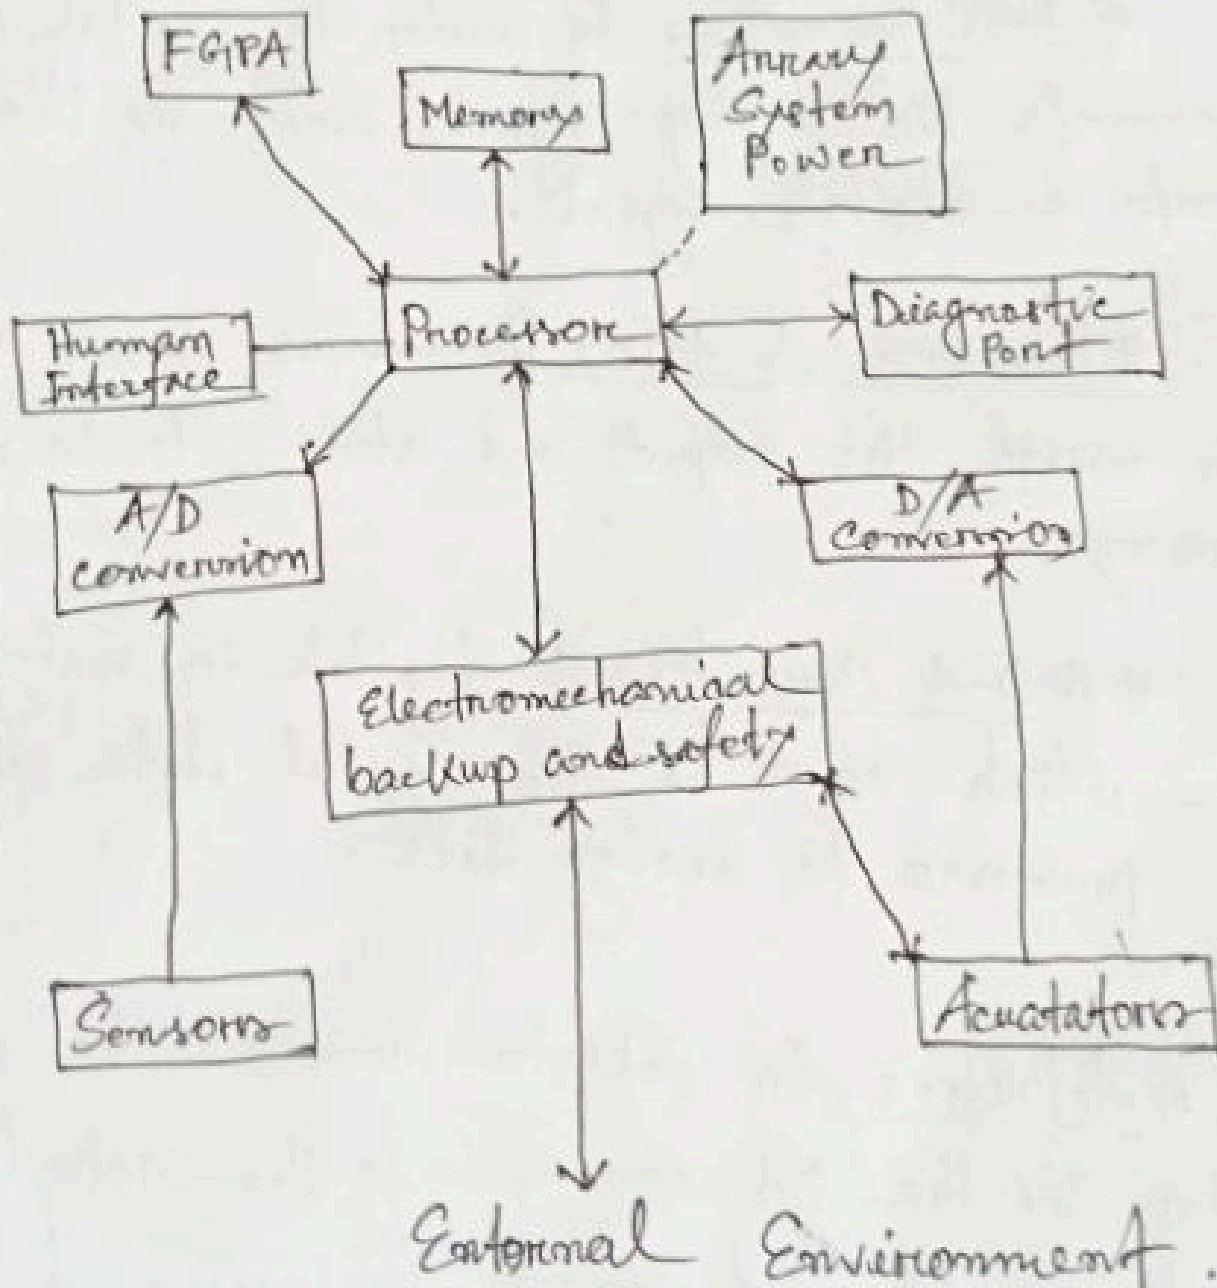 FGPA
Memorys
Anrary
System
Power
Human
Interface
Processor
Diagnostic
Port
A/D
conversion
D/A
Conversion
Electromechanical
backup and safety
Sensors
Acuatators
Enternal Environment.